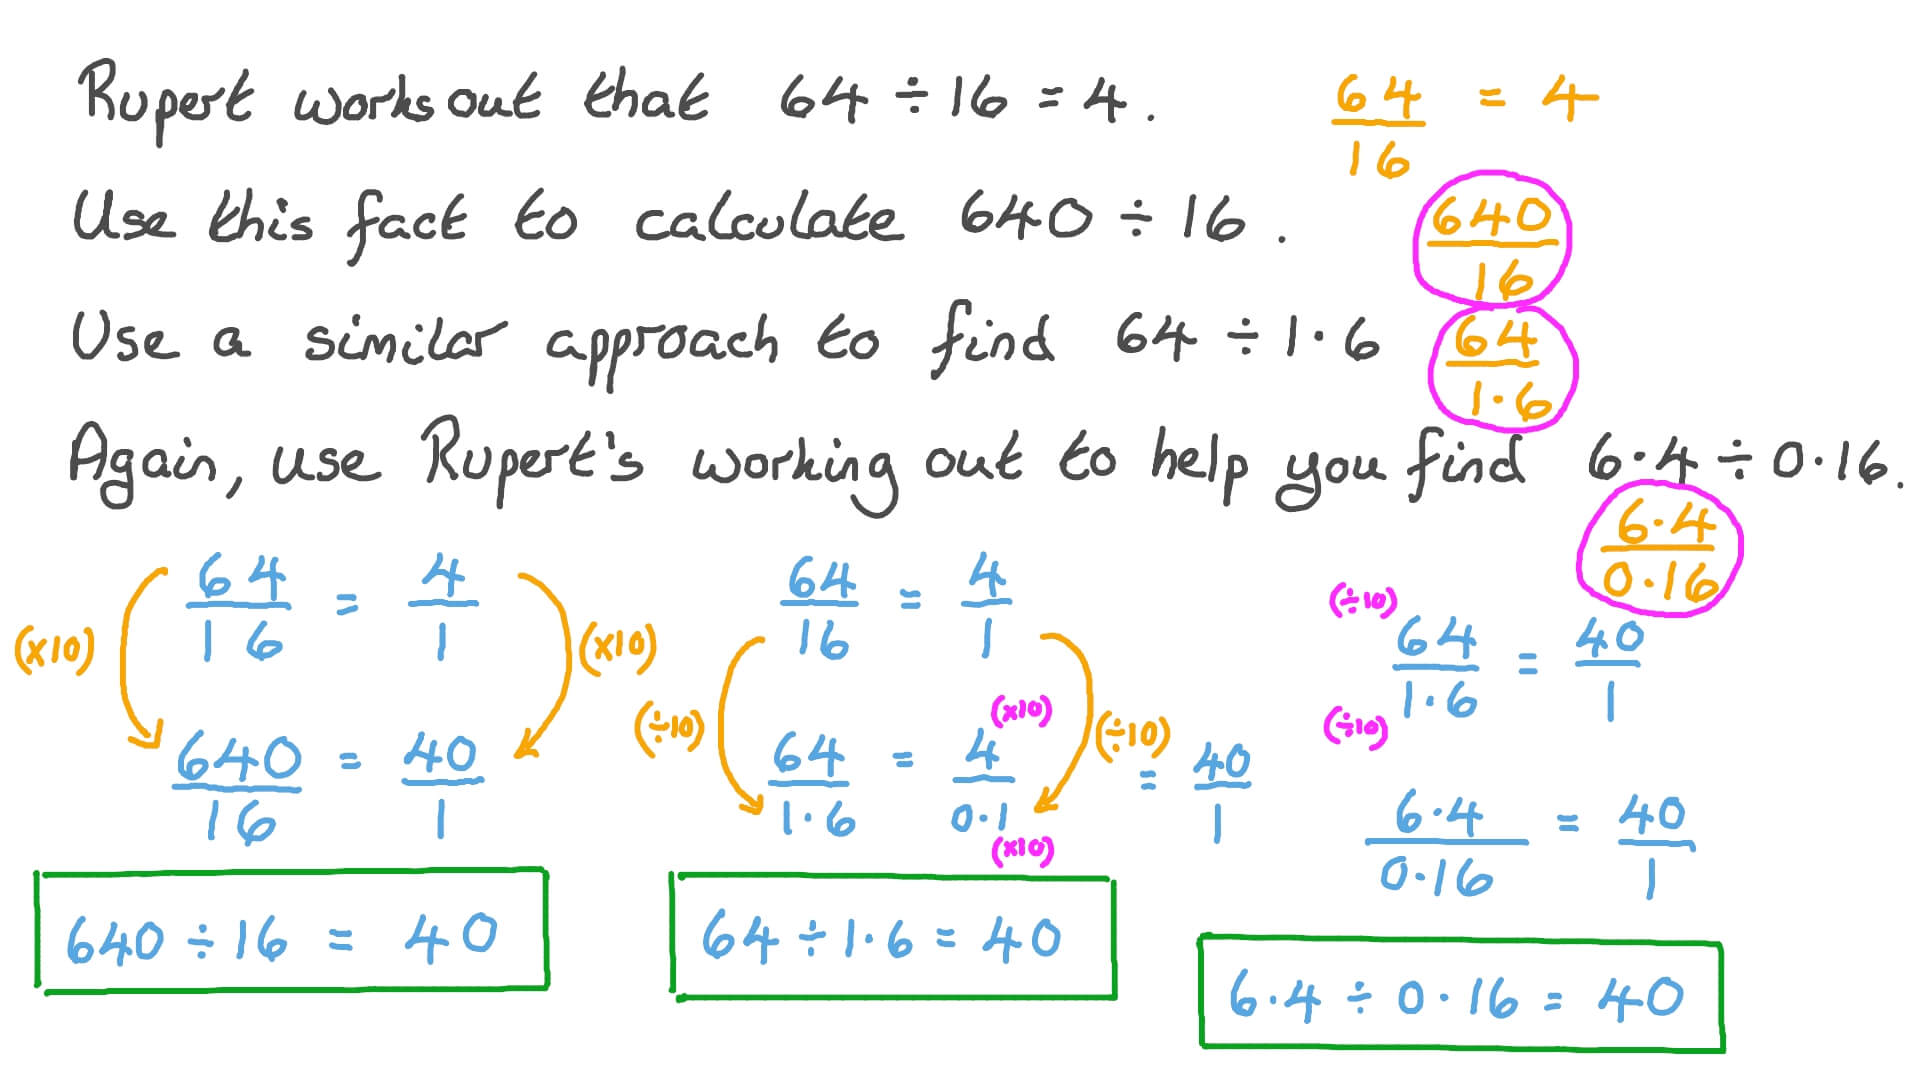 Rupert works out that 64 ÷ 16 = 4.
64/16 = 4
Use this fact to calculate 640 ÷ 16.
640/16
Use a similar approach to find 64 ÷ 1·6
64/1·6
Again, use Rupert's working out to help you find 6·4 ÷ 0·16.
6·4/0·16
64/16 = 4/1
(×10) (×10)
640/16 = 40/1
640 ÷ 16 = 40
64/16 = 4/1
(÷10) (÷10)
(×10)
64/1·6 = 4/0·1 = 40/1
(×10)
64 ÷ 1·6 = 40
(÷10)
64/1·6 = 40/1
(÷10)
6·4/0·16 = 40/1
6·4 ÷ 0·16 = 40